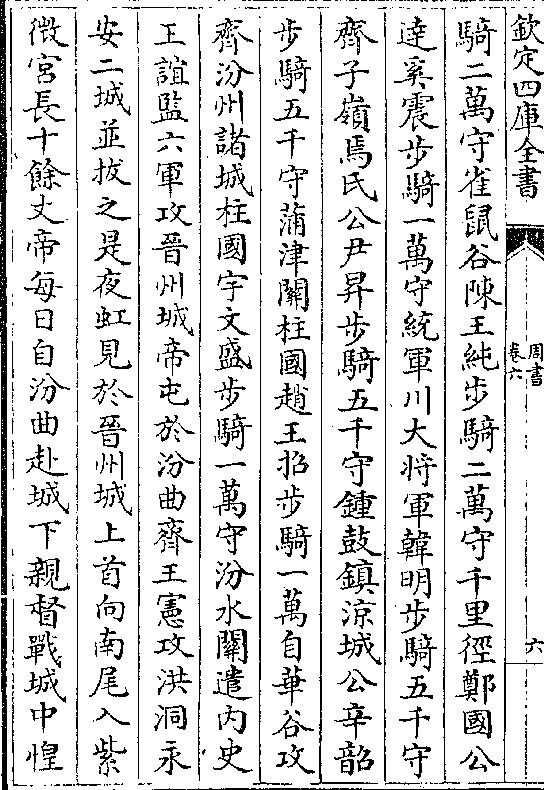 欽定四庫全書
周書
卷六
六
騎二萬守雀鼠谷陳王純步騎二萬守千里徑鄭國公
達奚震步騎一萬守統軍川大將軍韓明步騎五千守
齊子嶺焉氏公尹昇步騎五千守鍾鼓鎮涼城公辛韶
步騎五千守蒲津關柱國趙王招步騎一萬自華谷攻
齊汾州諸城柱國宇文盛步騎一萬守汾水關遣内史
王誼監六軍攻晉州城帝屯於汾曲齊王憲攻洪洞永
安二城並拔之是夜虹見於晉州城上首向南尾入紫
微宮長十餘丈帝每日自汾曲赴城下親督戰城中惶